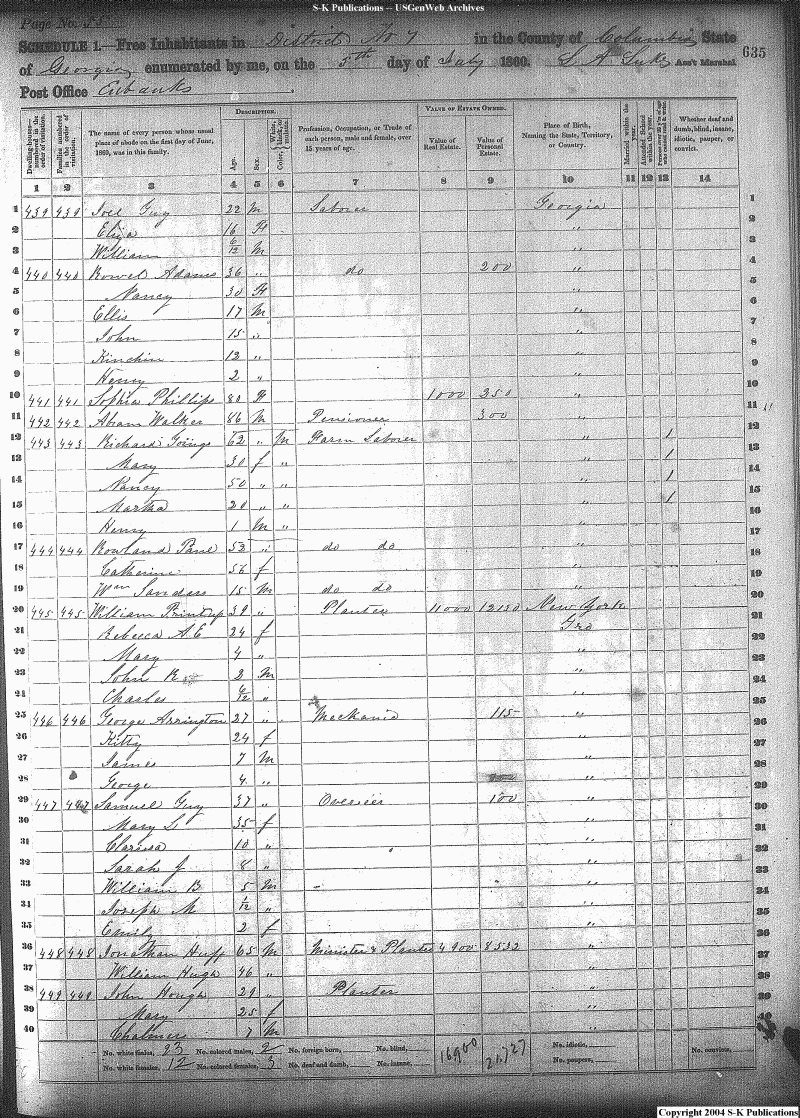 S-K Publications -- USGenWeb Archives
Page No. 55
SCHEDULE 1.—Free Inhabitants in District No 7 in the County of Columbia State
of Georgia enumerated by me, on the 5th day of July 1860. S A Luke Ass't Marshal
635
Post Office Eubanks
Dwelling-houses—numbered in the order of visitation.
Families numbered in the order of visitation.
The name of every person whose usual place of abode on the first day of June, 1860, was in this family.
DESCRIPTION.
Age.
Sex.
Color,
Profession, Occupation, or Trade of each person, male and female, over 15 years of age.
VALUE OF ESTATE OWNED.
Value of Real Estate.
Value of Personal Estate.
Place of Birth, Naming the State, Territory, or Country.
Married within the year.
Attended School within the year.
Whether deaf and dumb, blind, insane, idiotic, pauper, or convict.
1 2 3 4 5 6 7 8 9 10 11 12 13 14
1 439 439 Joel Guy 22 M Laborer Georgia 1
2 Eliza 16 F " 2
3 William 6/12 M " 3
4 440 440 Rowel Adams 36 " do 200 " 4
5 Nancy 30 F " 5
6 Ellis 17 M " 6
7 John 15 " " 7
8 Kinchin 12 " " 8
9 Henry 2 " " 9
10 441 441 Sophia Phillips 80 F 1000 350 " 10
11 442 442 Abram Walker 86 M Pensioner 300 " 11
12 443 443 Richard Goings 62 " M Farm Laborer " 1 12
13 Mary 30 f " " 1 13
14 Nancy 50 " " " 1 14
15 Martha 20 " " " 1 15
16 Henry 1 M " " 16
17 444 444 Rowland 53 " do do " 17
18 Catherine 56 f " 18
19 Wm Sanders 15 M do do " 19
20 445 445 William Printup 39 " Planter 11000 12130 New York 20
21 Rebecca A.E 24 f Geo 21
22 Mary 4 " " 22
23 John R 2 M " 23
24 Charles " " 24
25 446 446 George Arrington 27 " Mechanic 115 " 25
26 Kitty 24 f " 26
27 James 7 M " 27
28 George 4 " " 28
29 447 447 Samuel Guy 37 " Overseer 100 " 29
30 Mary L 35 f " 30
31 Clarissa 10 " " 31
32 Sarah J 8 " " 32
33 William B 5 M " 33
34 Joseph M 1/12 " " 34
35 Emily 2 f " 35
36 448 448 Jonathan Huff 65 M Minister & Planter 4900 8532 " 36
37 William Hugh 46 " " 37
38 449 449 John Hough 29 " Planter " 38
39 Mary 25 f " 39
40 Chalmers 7 M " 40
No. white males, 23 No. colored males, 2 No. foreign born, No. blind, 16900 21,727 No. idiotic, No. convicts,
No. white females, 12 No. colored females, 3 No. deaf and dumb, No. insane, No. paupers,
Copyright 2004 S-K Publications